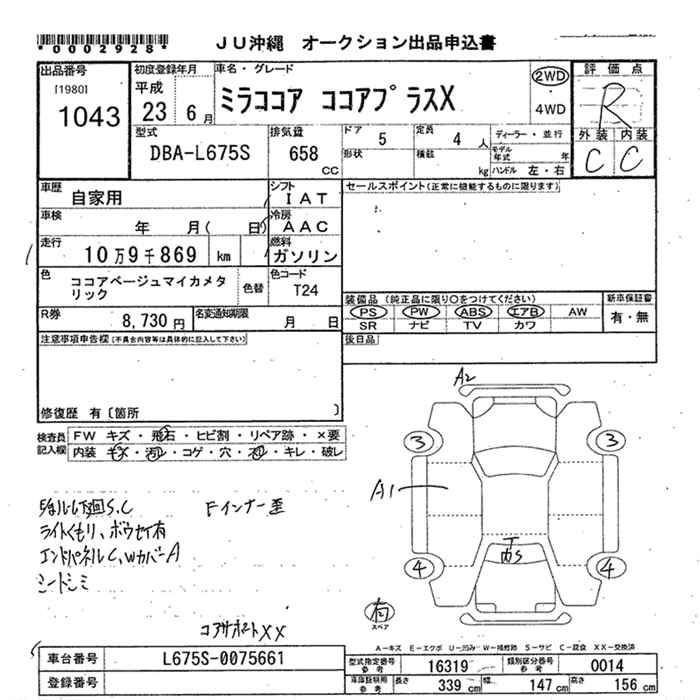 *0002928*
JU沖縄 オークション出品申込書
出品番号
[1980]
1043
初度登録年月
平成
23 6 月
車名・グレード
ミラココア ココアプラスX
2WD
・
4WD
評 価 点
R
外装 内装
C C
型式
DBA-L675S
排気量
658
CC
ドア
5
定員
4 人
ディーラー・並行
形状
積載
kg
モデル年式
年
ハンドル 左・右
車歴
自家用
シフト
IAT
セールスポイント(正常に機能するものに限ります)
車検
年 月( 日)
冷房
AAC
走行
10万9千869 km
燃料
ガソリン
色
ココアベージュマイカメタリック
色替
色コード
T24
装備品 (純正品に限り○をつけてください)
新車保証書
PS PW ABS エアB AW
有・無
SR ナビ TV カワ
R券
8,730 円
名変通知期限
月 日
後日品
注意事項申告欄(不具合内容等は具体的に記入して下さい)
修復歴 有〔箇所 〕
検査員
記入欄
FW キズ・飛石・ヒビ割・リペア跡・×要
内装・キズ・汚れ・コゲ・穴・スレ・キレ・破レ
A2
3
3
A1
4
4
S
有
スペア
下廻S.C
Fインナー歪
ライトくもり、ボウセイ有
エンドパネルC、WカバーA
シートシミ
コアサポートXX
A-キズ E-エクボ U-凹み W-補修跡 S-サビ C-腐食 XX-交換済
車台番号
L675S-0075661
登録番号
型式指定番号
参考
16319
類別区分番号
参考
0014
車庫証明用
参考
長さ
339 cm
幅
147 cm
高さ
156 cm